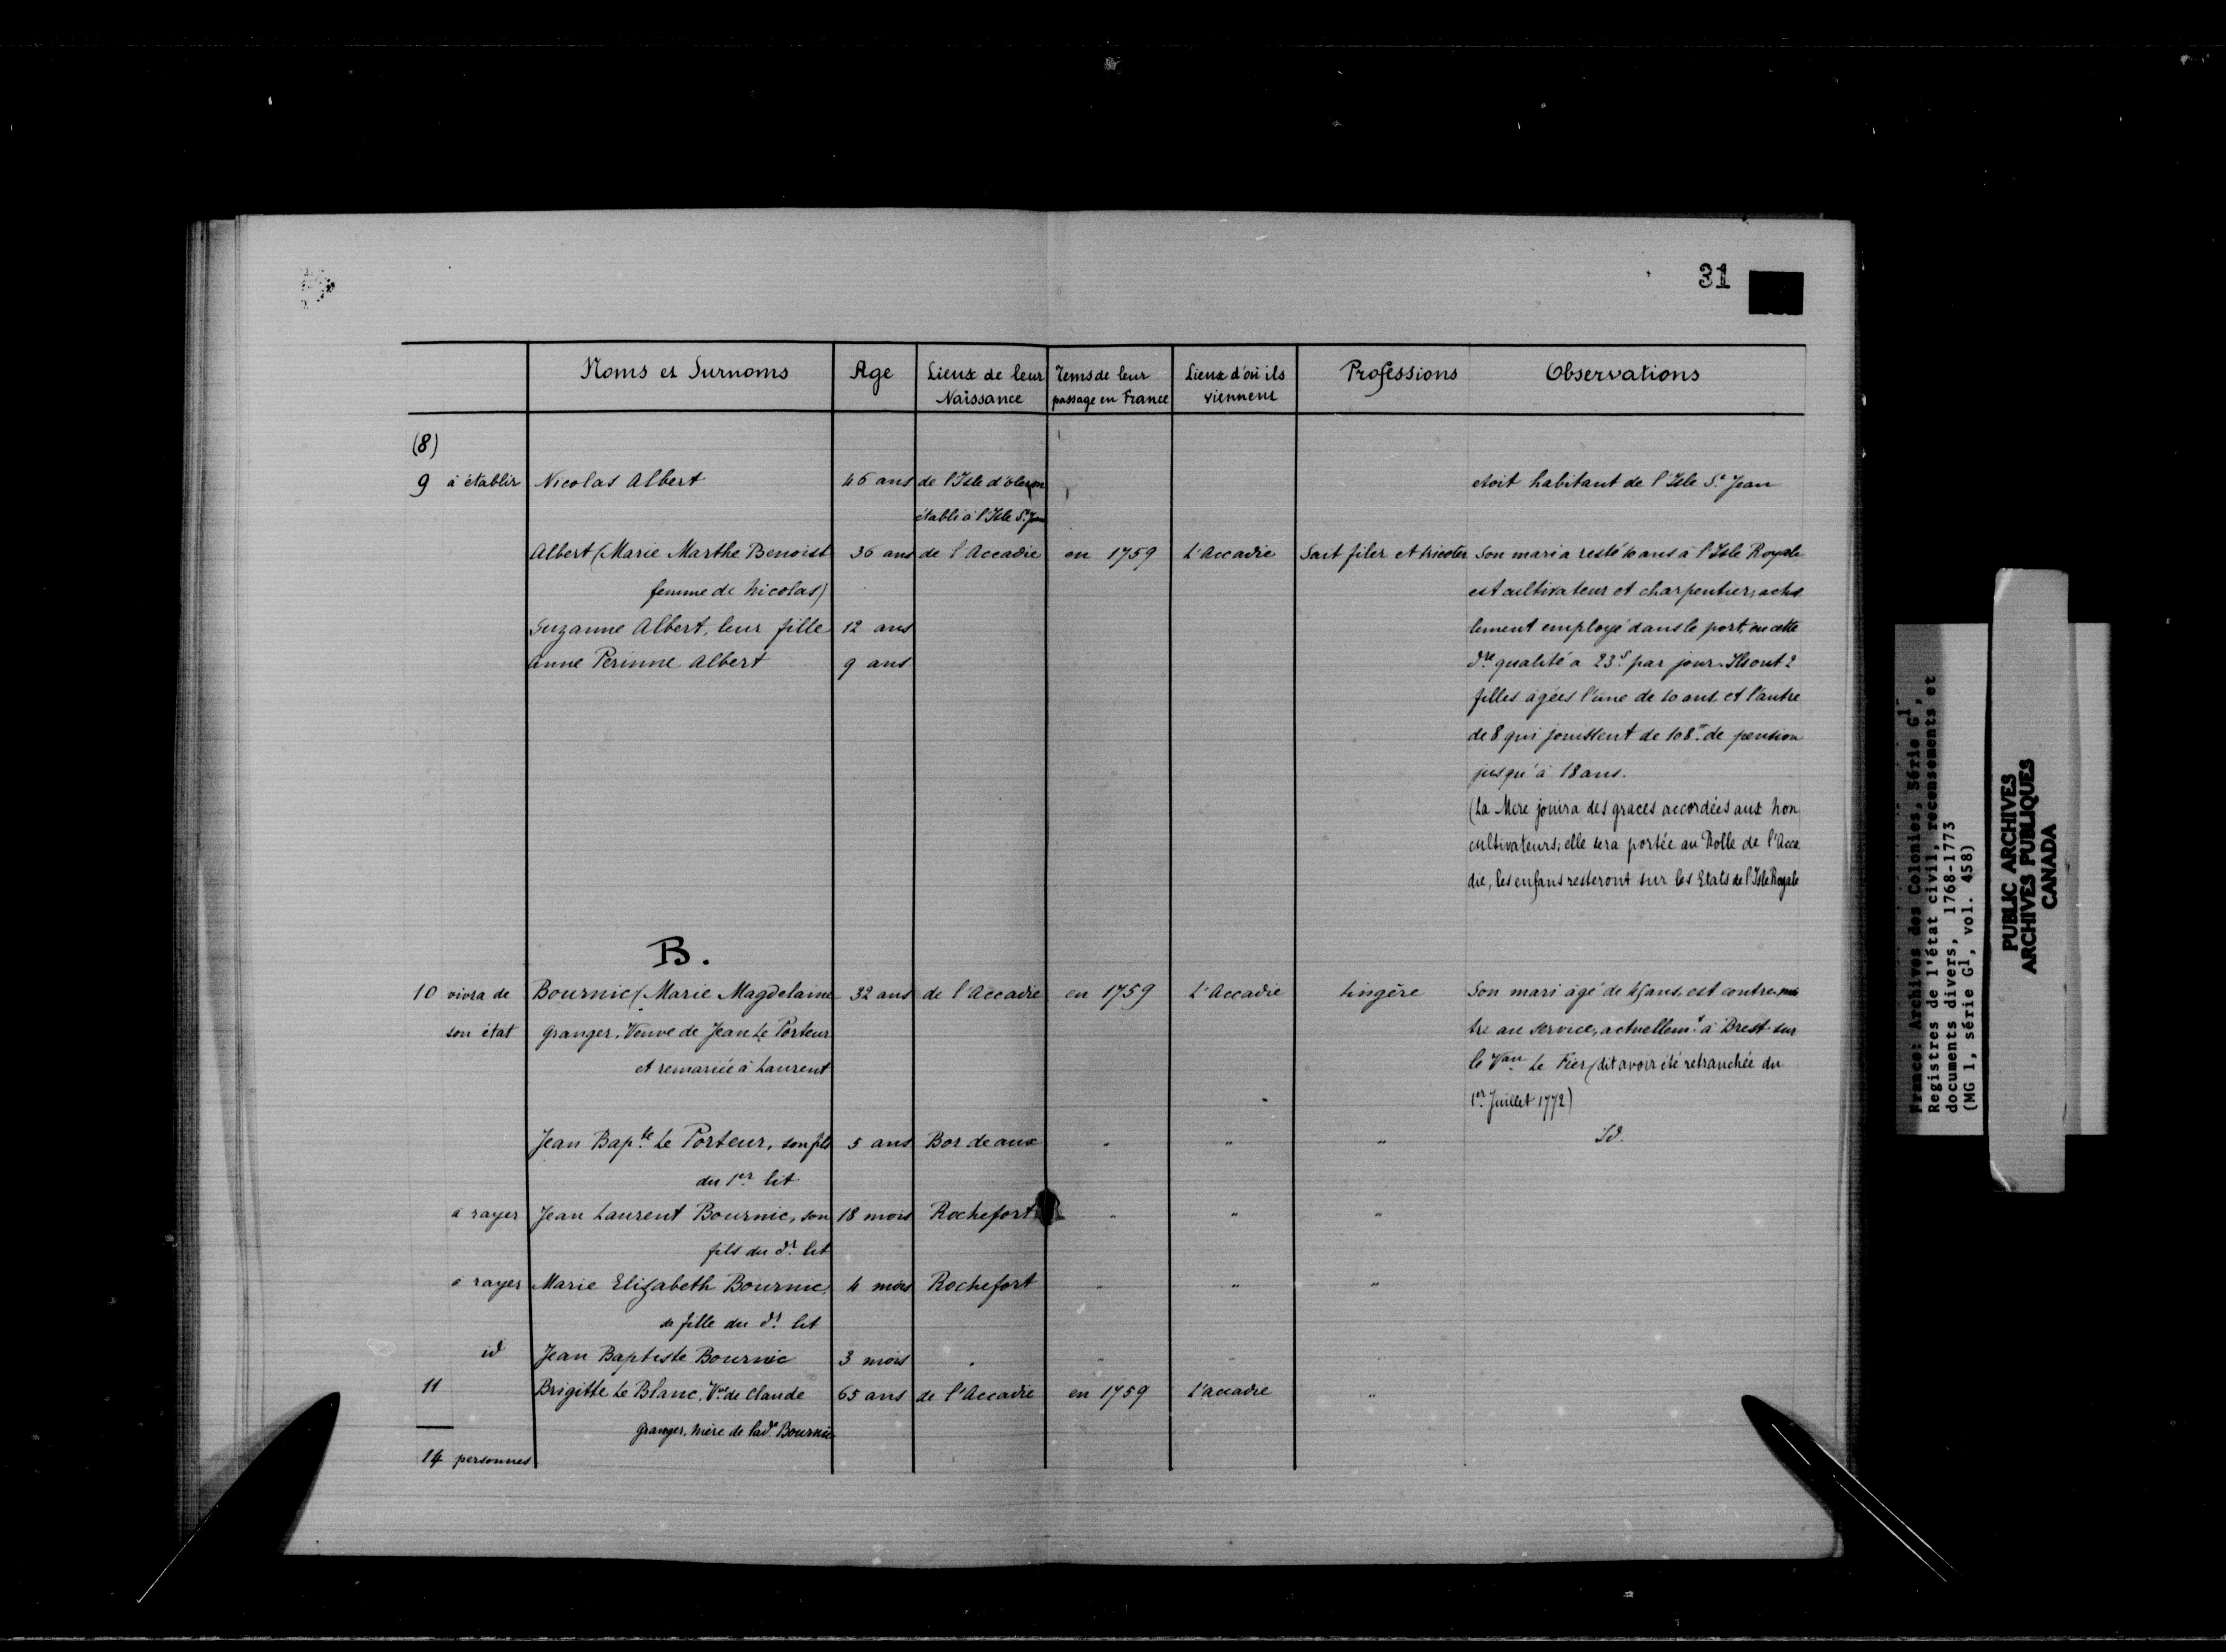 31
Noms et Surnoms Age Lieux de leur Naissance Tems de leur passage en France Lieux d'où ils viennent Professions Observations
(8)
9 à établir Nicolas Albert 46 ans de l'Isle d'oleron etoit habitant de l'Isle St Jean
établi à l'Isle St Jean
Albert (Marie Marthe Benoist 36 ans de l'Accadie en 1759 L'Accadie Sait filer et tricoter Son mari a resté 10 ans à l'Isle Royale
femme de Nicolas) est cultivateur et charpentier, actuel
Suzanne Albert, leur fille 12 ans lement employé dans le port, en cette
Anne Perinne Albert 9 ans dre qualité a 23s par jour. Ils ont 2
filles agées l'une de 10 ans et l'autre
de 8 qui jouissent de 108tt de pension
jusqu'à 18 ans.
(La Mere jouira des graces accordées aux non
cultivateurs; elle sera portée au Rolle de l'Acca
die, les enfans resteront sur les Etats de l'Isle Royale
B.
10 vivra de Bournic (Marie Magdelaine 32 ans de l'Accadie en 1759 L'Accadie Lingère Son mari agé de ans, est contremai
son état Granger, Veuve de Jean Le Porteur tre au service, actuellemt à Brest sur
et remariée à Laurent le Vau Le Fier (dit avoir été retranchée du
1er Juillet 1772)
Jean Bapte Le Porteur, son fils 5 ans Bordeaux " " " Id.
du 1er lit
à rayer Jean Laurent Bournic, son 18 mois Rochefort " " "
fils du dt lit
à rayer Marie Elizabeth Bournic, 4 mois Rochefort " " "
sa fille du dt lit
id Jean Baptiste Bournic 3 mois " " " "
11 Brigitte Le Blanc, Vve de Claude 65 ans de l'Accadie en 1759 L'accadie "
Granger, mère de lade Bournic
14 personnes
France: Archives des Colonies, Série G1,
Registres de l'état civil, recensements et
documents divers, 1768-1773
(MG 1, série G1, vol. 458)
PUBLIC ARCHIVES
ARCHIVES PUBLIQUES
CANADA